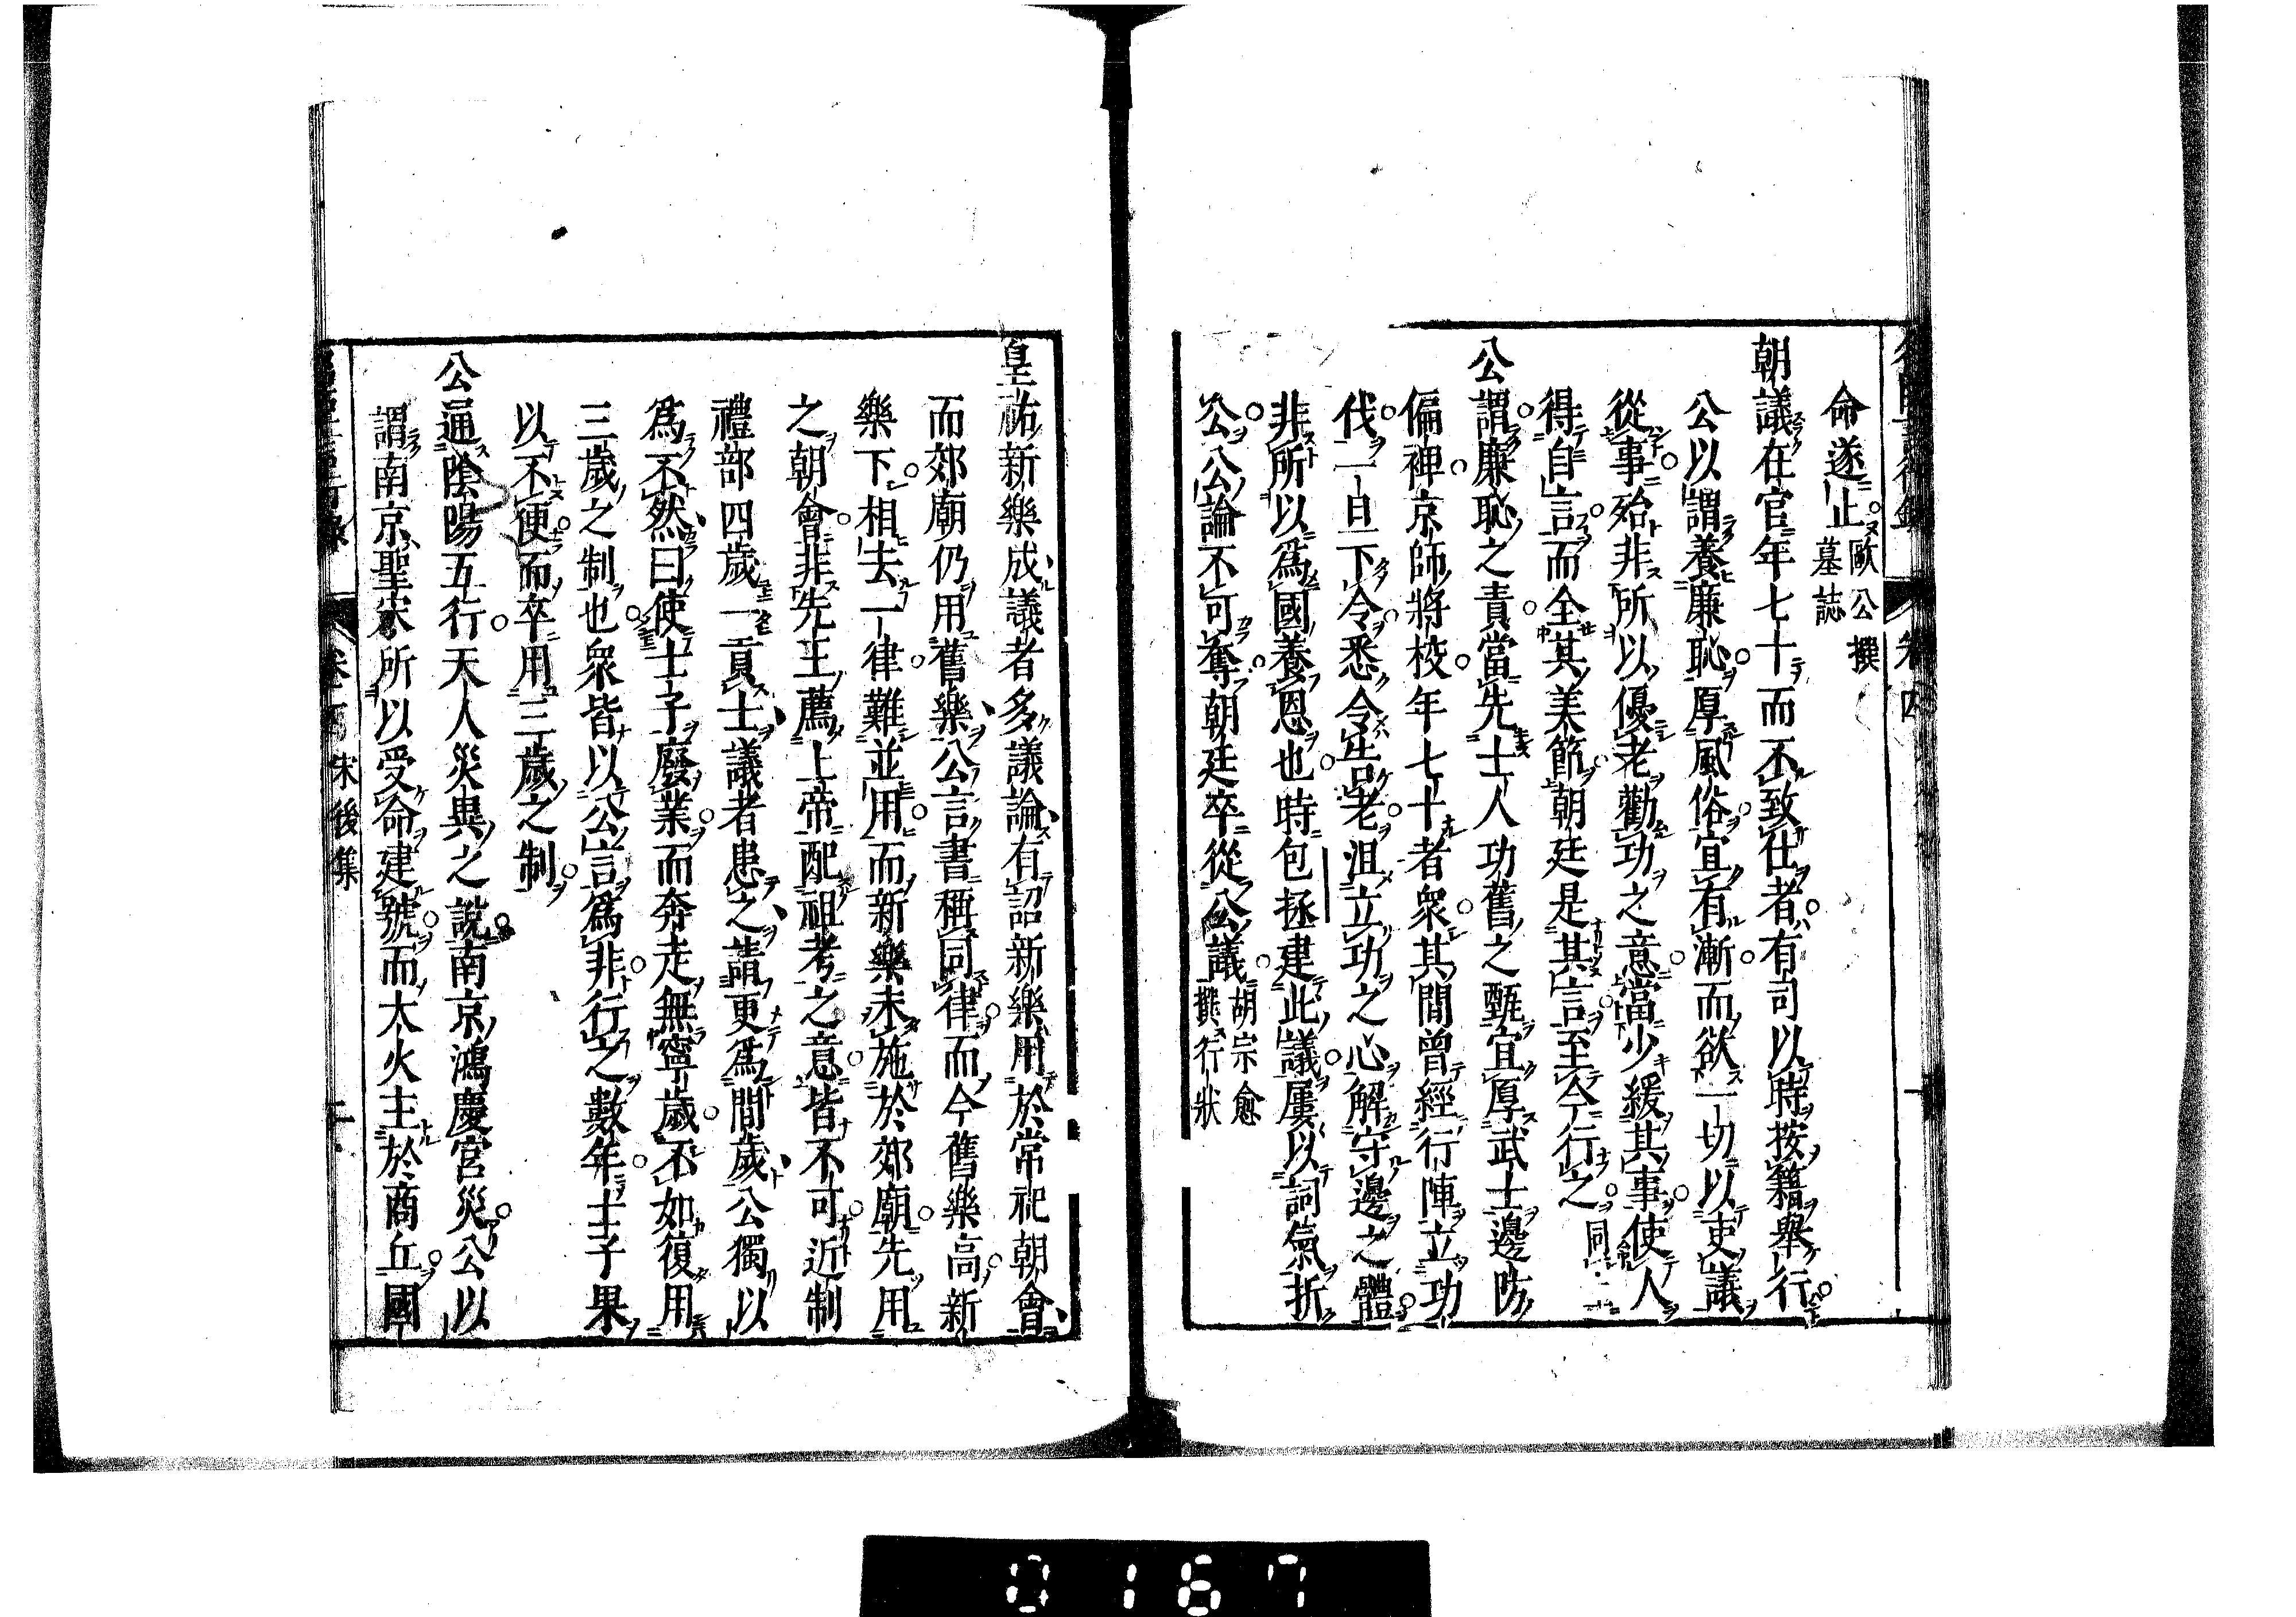 命遂止歐公撰墓誌
朝議在官年七十而不致仕者有司以時按籍舉行
公以謂養廉恥厚風俗宜有漸而欲一切以吏議
從事殆非所以優老勸功之意當少緩其事使人
得自言而全其美節朝廷是其言至今行之同
公謂廉恥之責當先士人功舊之甄宜厚武士邊防
偏裨京師將校年七十者衆其間曾經行陣立功
伐一旦下令悉令告老沮立功之心解守邊之體
非所以爲國養恩也時包拯建此議屢以詞氣折
公公論不可奪朝廷卒從公議胡宗愈撰行狀
皇祐新樂成議者多議論有詔新樂用於常祀朝會
而郊廟仍用舊樂公言書稱同律而今舊樂高新
樂下相去一律難並用而新樂未施於郊廟先用
之朝會非先王薦上帝配祖考之意皆不可近制
禮部四歲一貢士議者患之請更爲間歲公獨以
爲不然曰使士子廢業而奔走無寧歲不如復用
三歲之制也衆皆以公言爲非行之數年士子果
以不便而卒用三歲之制
公通陰陽五行天人災異之說南京鴻慶宮災公以
謂南京聖宋所以受命建號而大火主於商丘國
宋後集
0167